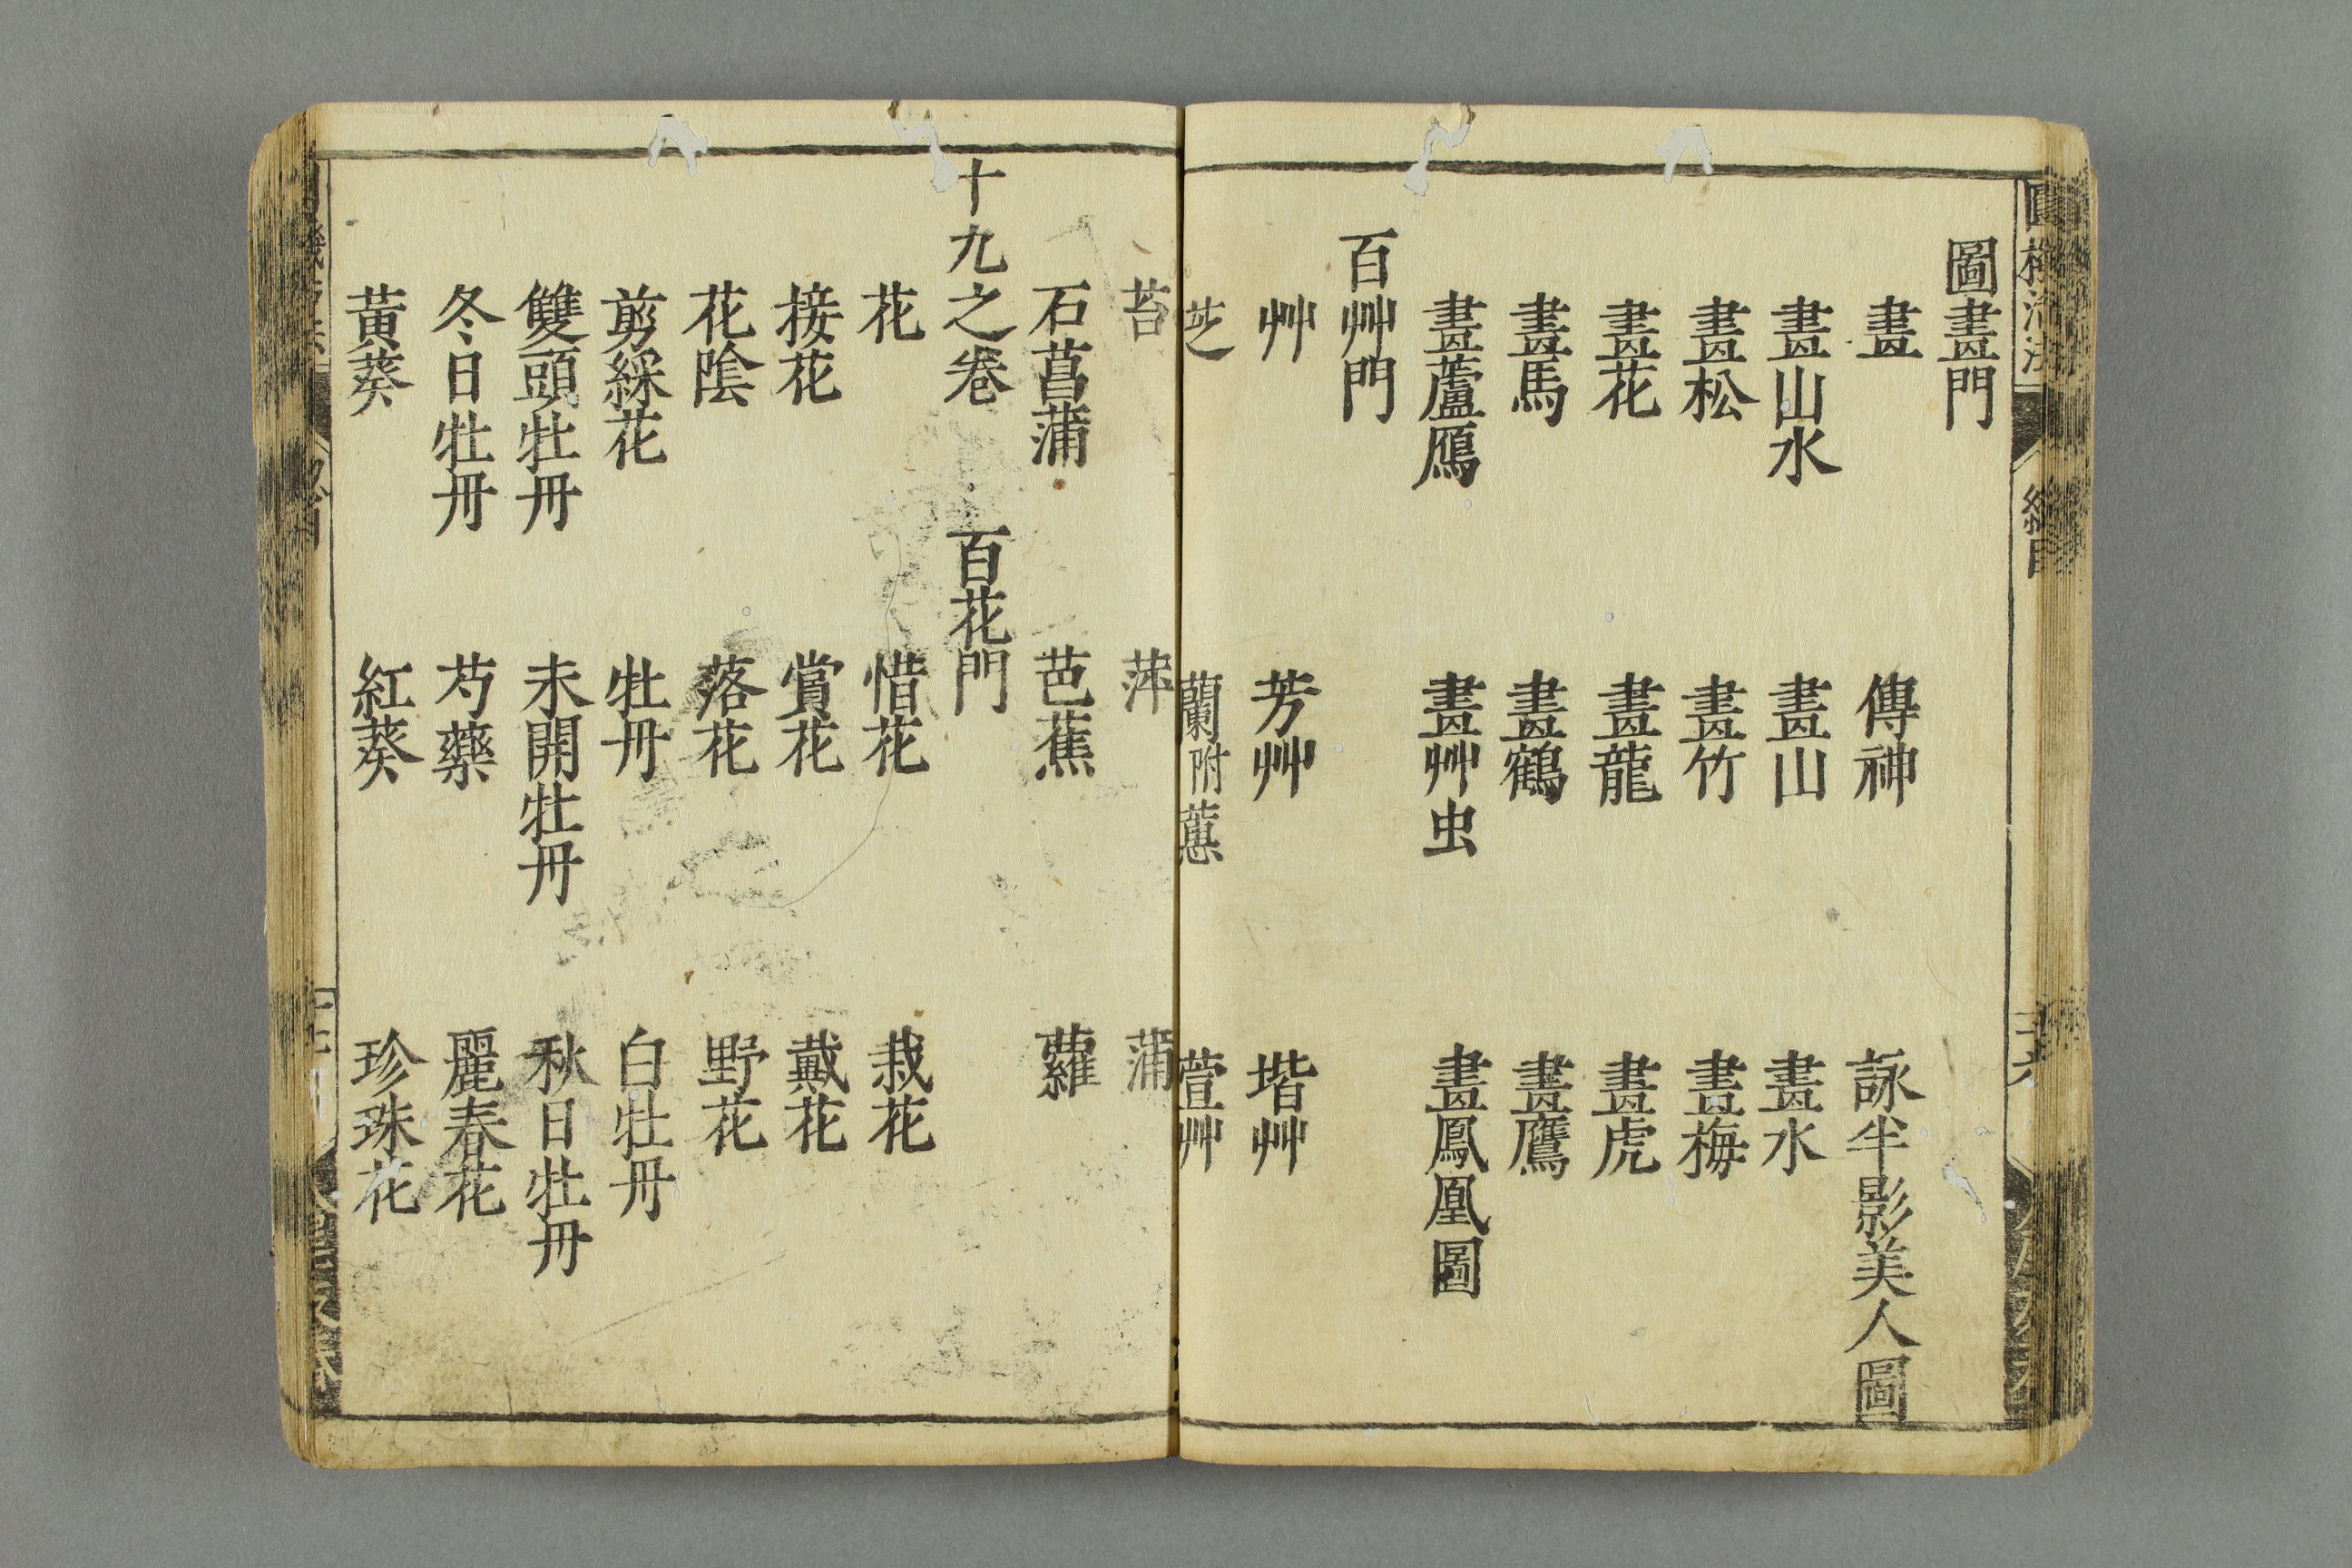 圖畫門
畫　傳神　詠半影美人圖
畫山水　畫山　畫水
畫松　畫竹　畫梅
畫花　畫龍　畫虎
畫馬　畫鶴　畫鷹
畫蘆鴈　畫艸虫　畫鳳凰圖
百艸門
艸　芳艸　堦艸
芝　蘭附蕙　萱艸
苔　萍　蒲
石菖蒲　芭蕉　蘿
十九之卷　百花門
花　惜花　栽花
接花　賞花　戴花
花陰　落花　野花
剪綵花　牡丹　白牡丹
雙頭牡丹　未開牡丹　秋日牡丹
冬日牡丹　芍藥　麗春花
黃葵　紅葵　珍珠花